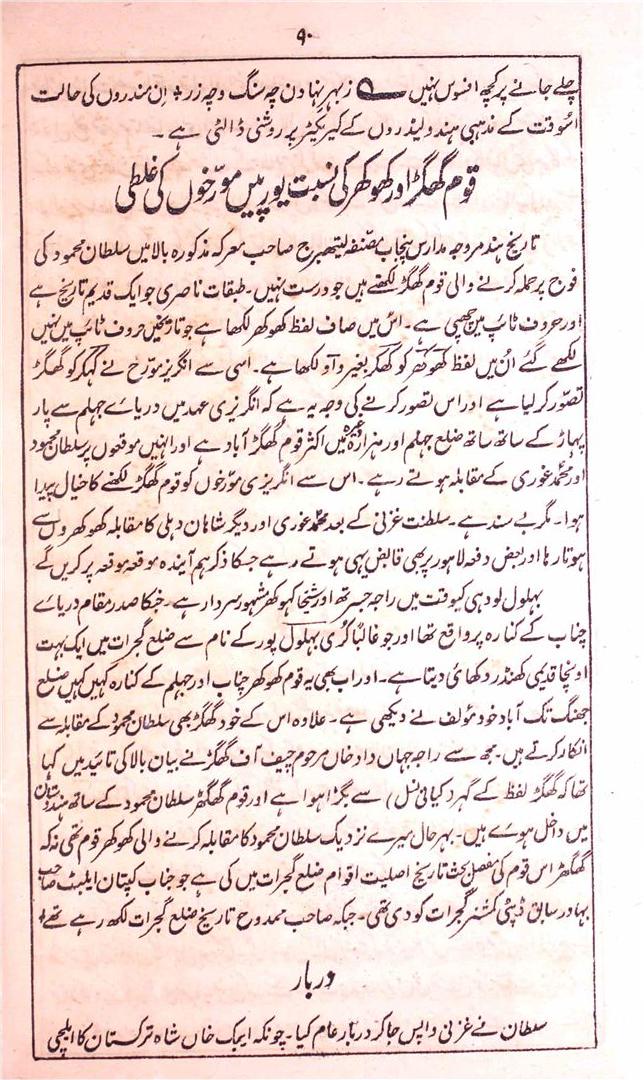 ۹۰
چلے جانے پر کچھ افسوس نہیں ؎ زبہر نہادن چہ سنگ وچہ زر ٭ اِن مندروں کی حالت
اسُوقت کے مذہبی ہندو لیڈروں کے کیریکٹر پر روشنی ڈالتی ہے ۔
قوم گھگڑ اور کھوکھر کی نسبت یورپین مورّخوں کی غلطی
تاریخ ہند مروجہ مدارس پنجاب مصنفہ لیتھبرج صاحب معرکہ مذکورہ بالا میں سلطان محمود کی
فوج پر حملہ کرنے والی قوم گھگڑ لکھتے ہیں جو درست نہیں۔ طبقات ناصری جو ایک قدیم تاریخ ہے
اور حروف ٹائپ میں چھپی ہے۔ اس میں صاف لفظ کھوکھر لکھا ہے جو تاریخیں حروف ٹائپ میں نہیں
لکھے گئے اُن میں لفظ کھوکھر کو کھکر بغیر واو لکھا ہے۔ اسی سے انگریز مورّخ نے کہکر کو گھگڑ
تصوّر کر لیا ہے اور اس تصور کرنے کی وجہ یہ ہے کہ انگریزی عہد میں دریاے جہلم سے پار
پہاڑ کے ساتھ ساتھ ضلع جہلم اور ہزارہ وغیرہ میں اکثر قوم گھگڑ آباد ہے اور انہیں موقعوں پر سلطان محمود
اور محمد غوری کے مقابلہ ہوتے رہے۔ اس سے انگریزی مورّخوں کو قوم گھگڑ لکھنے کا خیال پیدا
ہوا۔ مگر بے سند ہے۔ سلطنت غزنی کے بعد محمد غوری اور دیگر شاہان دہلی کا مقابلہ کھوکھروں سے
ہوتا رہا اور بعض دفعہ لاہور پر بھی قابض یہی ہوتے رہے جسکا ذکر ہم آیندہ موقعہ موقعہ پر کریں گے
بہلول لودہی کیوقت میں راجہ جسرتھ اور شیخا کہوکھر مشہور سردار ہے۔ جنکا صدر مقام دریاے
چناب کے کنارہ پر واقع تھا اور جو غالباً کُری بہلول پور کے نام سے ضلع گجرات میں ایک بہت
اونچا قدیمی کھنڈر دکھائی دیتا ہے۔ اور اب بھی یہ قوم کھوکھر چناب اور جہلم کے کنارہ کہیں کہیں ضلع
جھنگ تک آباد خود مؤلف نے دیکھی ہے۔ علاوہ اس کے خود گھگڑ بھی سلطان محمود کے مقابلہ سے
انکار کرتے ہیں۔ مجھ سے راجہ جہاں داد خاں مرحوم چیف آف گھگڑ نے بیان بالا کی تائید میں کہا
تھا کہ گھگڑ لفظ کے گہرد کیانی نسل) سے بگڑا ہوا ہے اور قوم گھگھڑ سلطان محمود کے ساتھ ہندوستان
میں داخل ہوے ہیں۔ بہرحال میرے نزدیک سلطان محمود کا مقابلہ کرنے والی کھوکھر قوم تھی نہ کہ
گھگھڑ اس قوم کی مفصل بحث تاریخ اصلیت اقوام ضلع گجرات میں کی ہے جو جناب کپتان ایلیٹ صاحب
بہادر سابق ڈپٹی کمشنر گجرات کو دی تھی۔ جبکہ صاحب ممدوح تاریخ ضلع گجرات لکھ رہے تھے
دربار
سلطان نے غزنی واپس جا کر دربار عام کیا۔ چونکہ ایبک خاں شاہ ترکستان کا ایلچی